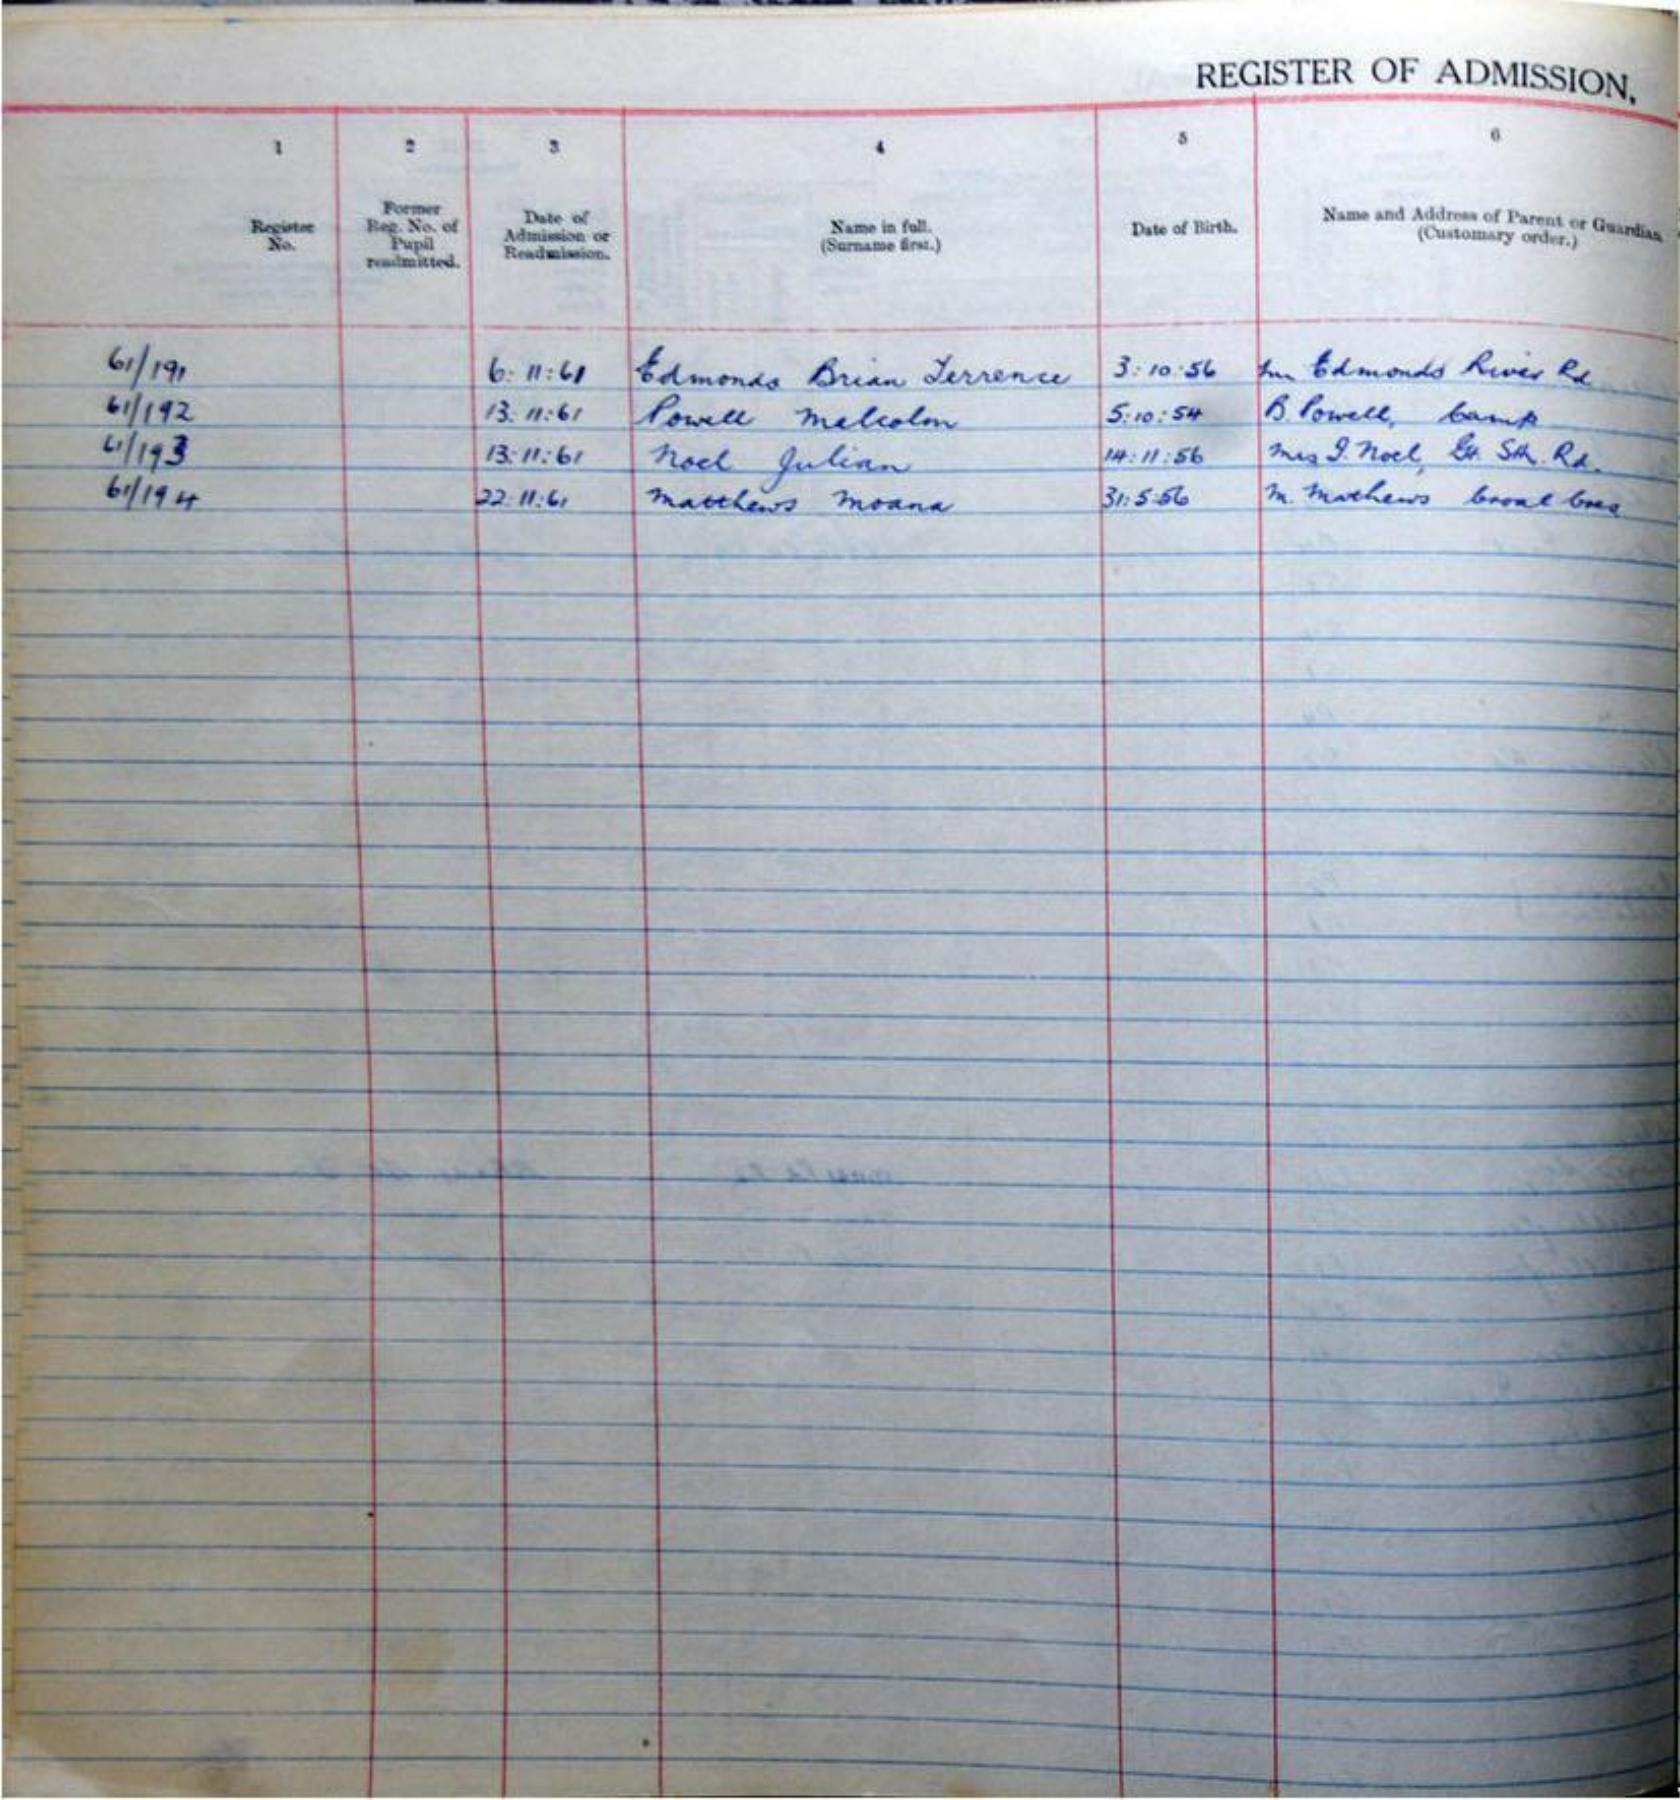 REGISTER OF ADMISSION,
1 2 3 4 5 6
Register No. Former Reg. No. of Pupil readmitted. Date of Admission or Readmission. Name in full. (Surname first.) Date of Birth. Name and Address of Parent or Guardian (Customary order.)
61/191 6:11:61 Edmonds Brian Terrence 3:10:56 Edmonds River Rd
61/192 13:11:61 Powell Malcolm 5:10:54 B. Powell, Camp
61/193 13:11:61 Noel Julian 14:11:56 Mrs I. Noel, Gt. Sth. Rd.
61/194 22:11:61 Matthews Moana 31:5:56 M. Mathews